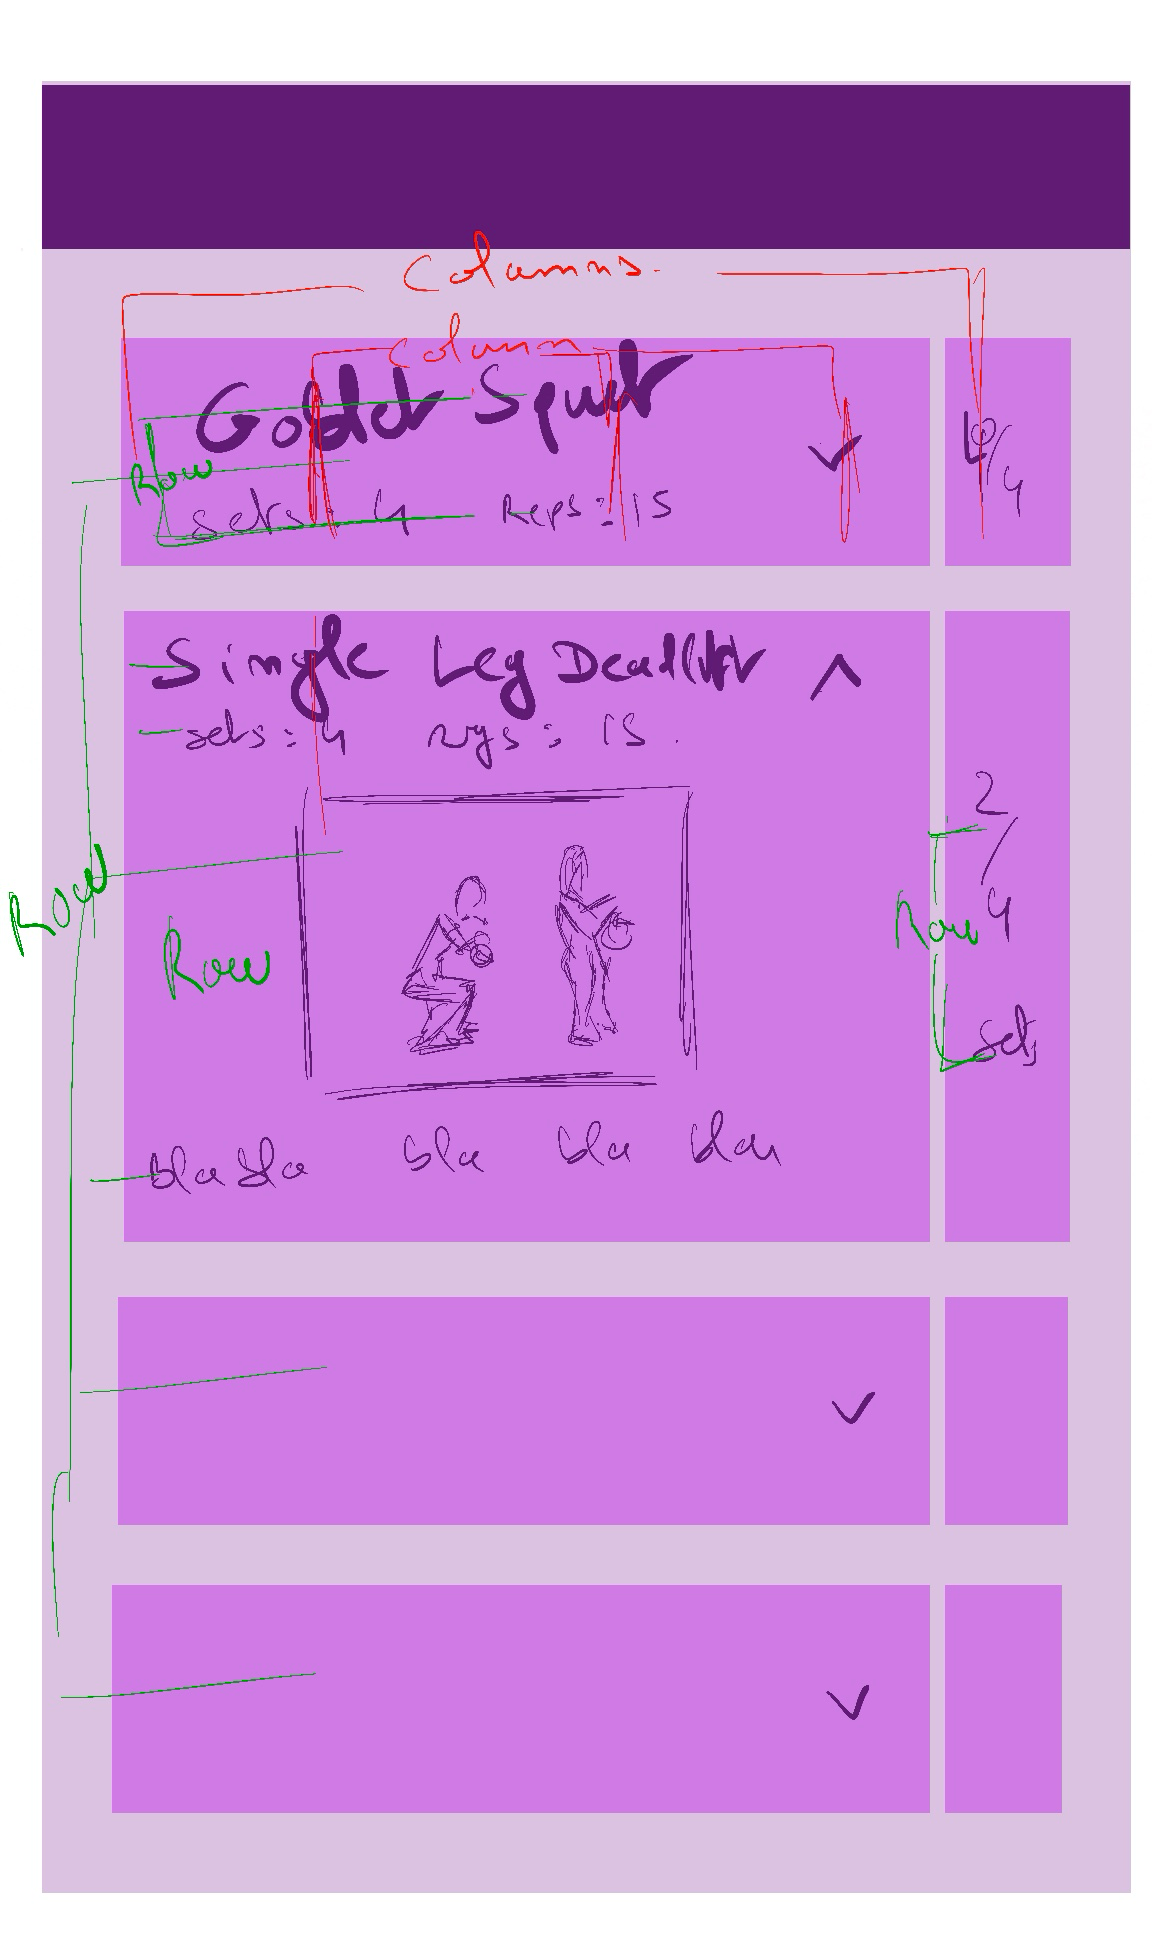 Columns.
Column
Goblet Squat
Row
sets: 4 Reps: 15
0/4
Single Leg Deadlift
sets: 4 reps: 15.
2/4
Row
Row
Row
sets
bla bla bla bla bla